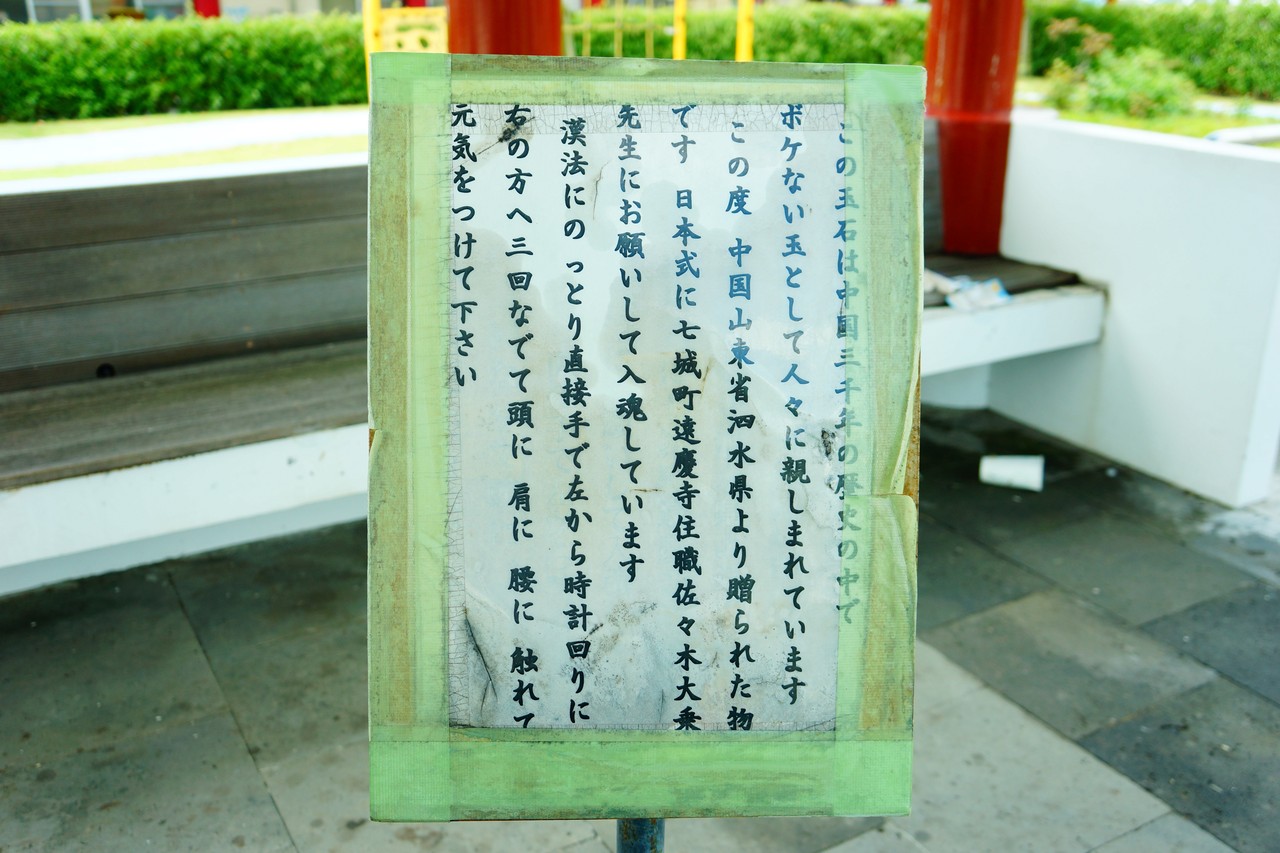 この玉石は中国三千年の歴史の中で
ボケない玉として人々に親しまれています
この度 中国山東省泗水県より贈られた物
です 日本式に七城町遠慶寺住職佐々木大乗
先生にお願いして入魂しています
漢法にのっとり直接手で左から時計回りに
右の方へ三回なでて頭に 肩に 腰に 触れて
元気をつけて下さい